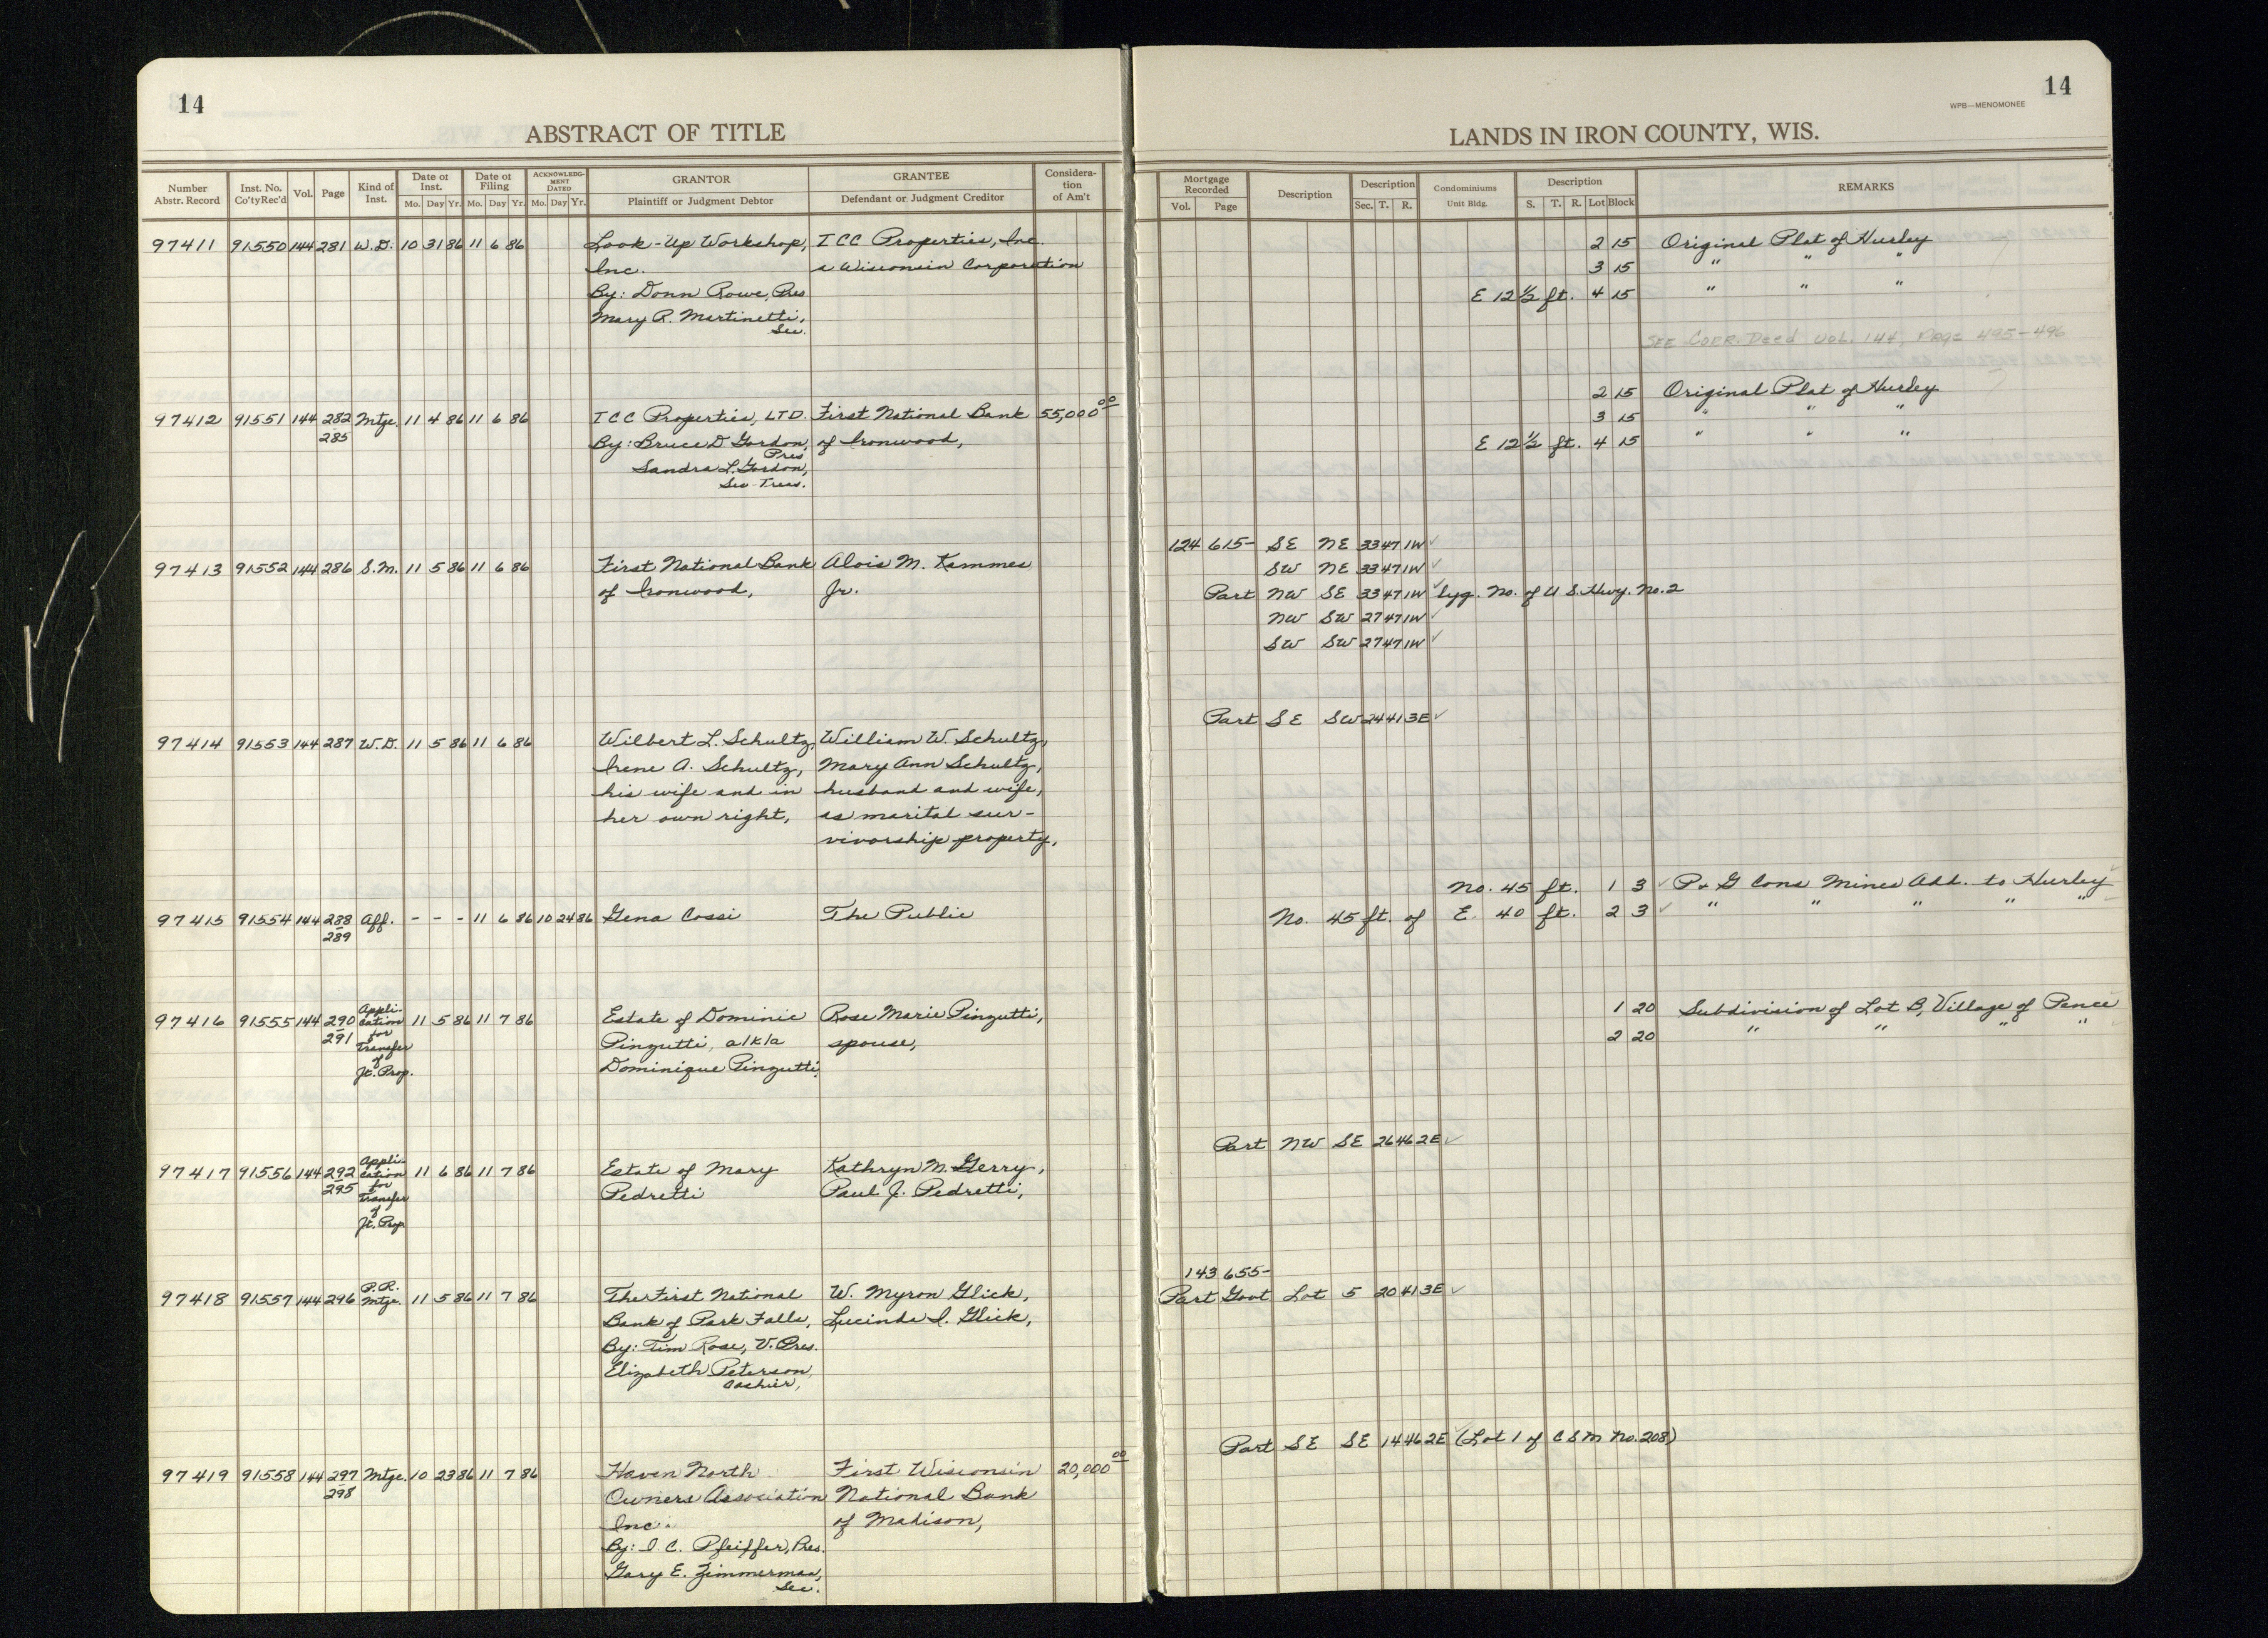 14
ABSTRACT OF TITLE
Number Abstr. Record
Inst. No. Co'ty Rec'd
Vol.
Page
Kind of Inst.
Date of Inst.
Mo. Day Yr.
Date of Filing
Mo. Day Yr.
ACKNOWLEDGMENT DATED
Mo. Day Yr.
GRANTOR
Plaintiff or Judgment Debtor
GRANTEE
Defendant or Judgment Creditor
Consideration of Am't
97411 91550 144 281 W.D. 10 31 86 11 6 86 Look-Up Workshop, ICC Properties, Inc.
Inc. a Wisconsin Corporation
By: Donn Rowe, Pres
Mary R. Martinetti,
Sec.
97412 91551 144 282 Mtge. 11 4 86 11 6 86 ICC Properties, LTD. First National Bank 55,000 00
285 By: Bruce D Gordon, of Ironwood,
Pres
Sandra L. Gordon,
Sec-Treas.
97413 91552 144 286 S.M. 11 5 86 11 6 86 First National Bank Alois M. Kammes
of Ironwood, Jr.
97414 91553 144 287 W.D. 11 5 86 11 6 86 Wilbert L. Schultz, William W. Schultz,
Irene A. Schultz, Mary Ann Schultz,
his wife and in husband and wife,
her own right, as marital sur-
vivorship property,
97415 91554 144 288 Aff. - - - 11 6 86 10 24 86 Gena Cossi The Public
289
97416 91555 144 290 Appli-cation for Transfer of Jt. Prop. 11 5 86 11 7 86 Estate of Dominic Rose Marie Pinzutti,
291 Pinzutti, a/k/a spouse,
Dominique Pinzutti,
97417 91556 144 292 Appli-cation for Transfer of Jt. Prop. 11 6 86 11 7 86 Estate of Mary Kathryn M. Gerry,
295 Pedretti Paul J. Pedretti,
97418 91557 144 296 P.R. Mtge. 11 5 86 11 7 86 The First National W. Myron Glick,
Bank of Park Falls, Lucinda I. Glick,
By: Tim Rose, V. Pres.
Elizabeth Peterson,
Cashier,
97419 91558 144 297 Mtge. 10 23 86 11 7 86 Haven North First Wisconsin 20,000 00
298 Owners Association National Bank
Inc. of Madison,
By: I. C. Pfeiffer, Pres.
Gary E. Zimmerman,
Sec.
14
WPB—MENOMONEE
LANDS IN IRON COUNTY, WIS.
Mortgage Recorded
Vol. Page
Description
Description
Sec. T. R.
Condominiums
Unit Bldg.
Description
S. T. R. Lot Block
REMARKS
2 15 Original Plat of Hurley
3 15 " " "
E 12 ½ ft. 4 15 " " "
SEE CORR. Deed VOL. 144, PAGE 495-496
2 15 Original Plat of Hurley
3 15 " " "
E 12 ½ ft. 4 15 " " "
124 615- SE NE 33 47 1W ✓
SW NE 33 47 1W ✓
Part NW SE 33 47 1W ✓ lyg. No. of U.S. Hwy. No. 2
NW SW 27 47 1W ✓
SW SW 27 47 1W ✓
Part SE SW 24 41 3E ✓
No. 45 ft. 1 3 ✓ P & G Cons Mines Add. to Hurley
No. 45 ft. of E. 40 ft. 2 3 ✓ " " " " "
1 20 Subdivision of Lot B, Village of Pence
2 20 " " " "
Part NW SE 26 46 2E ✓
143 655-
Part Govt Lot 5 20 41 3E ✓
Part SE SE 14 46 2E (Lot 1 of CSM No. 208)